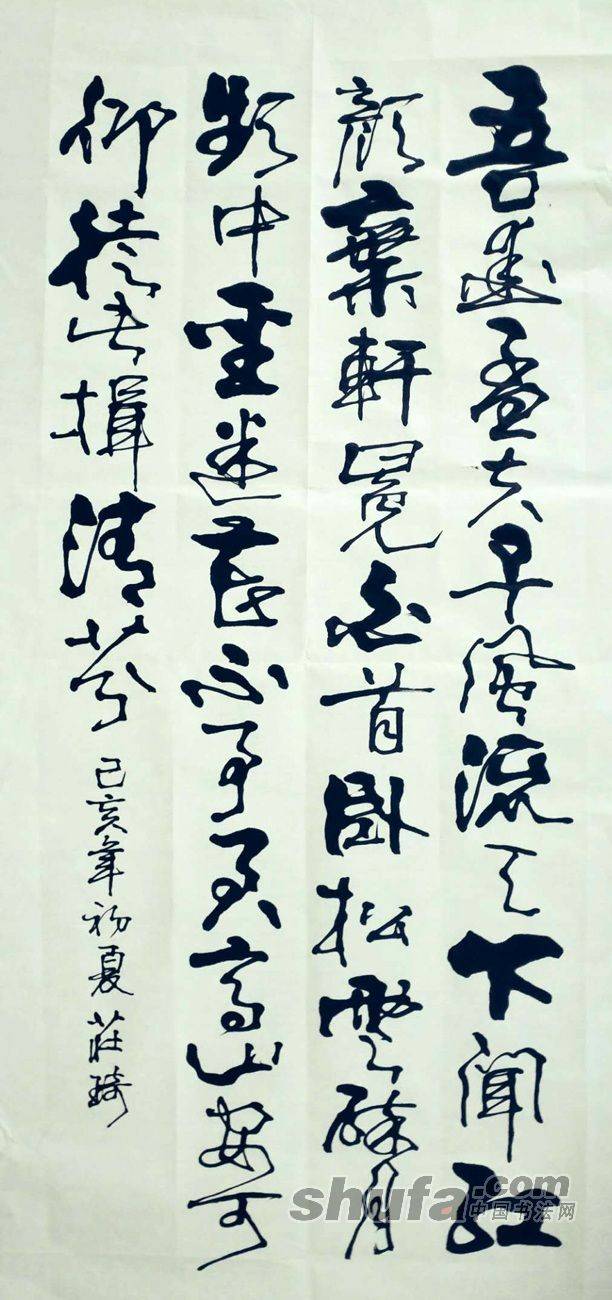 吾愛孟夫子風流天下聞紅
顏棄軒冕白首臥松雲醉月
頻中聖迷花不事君高山安可
仰徒此揖清芬
己亥年初夏莊琦
shufa.com
中国书法网